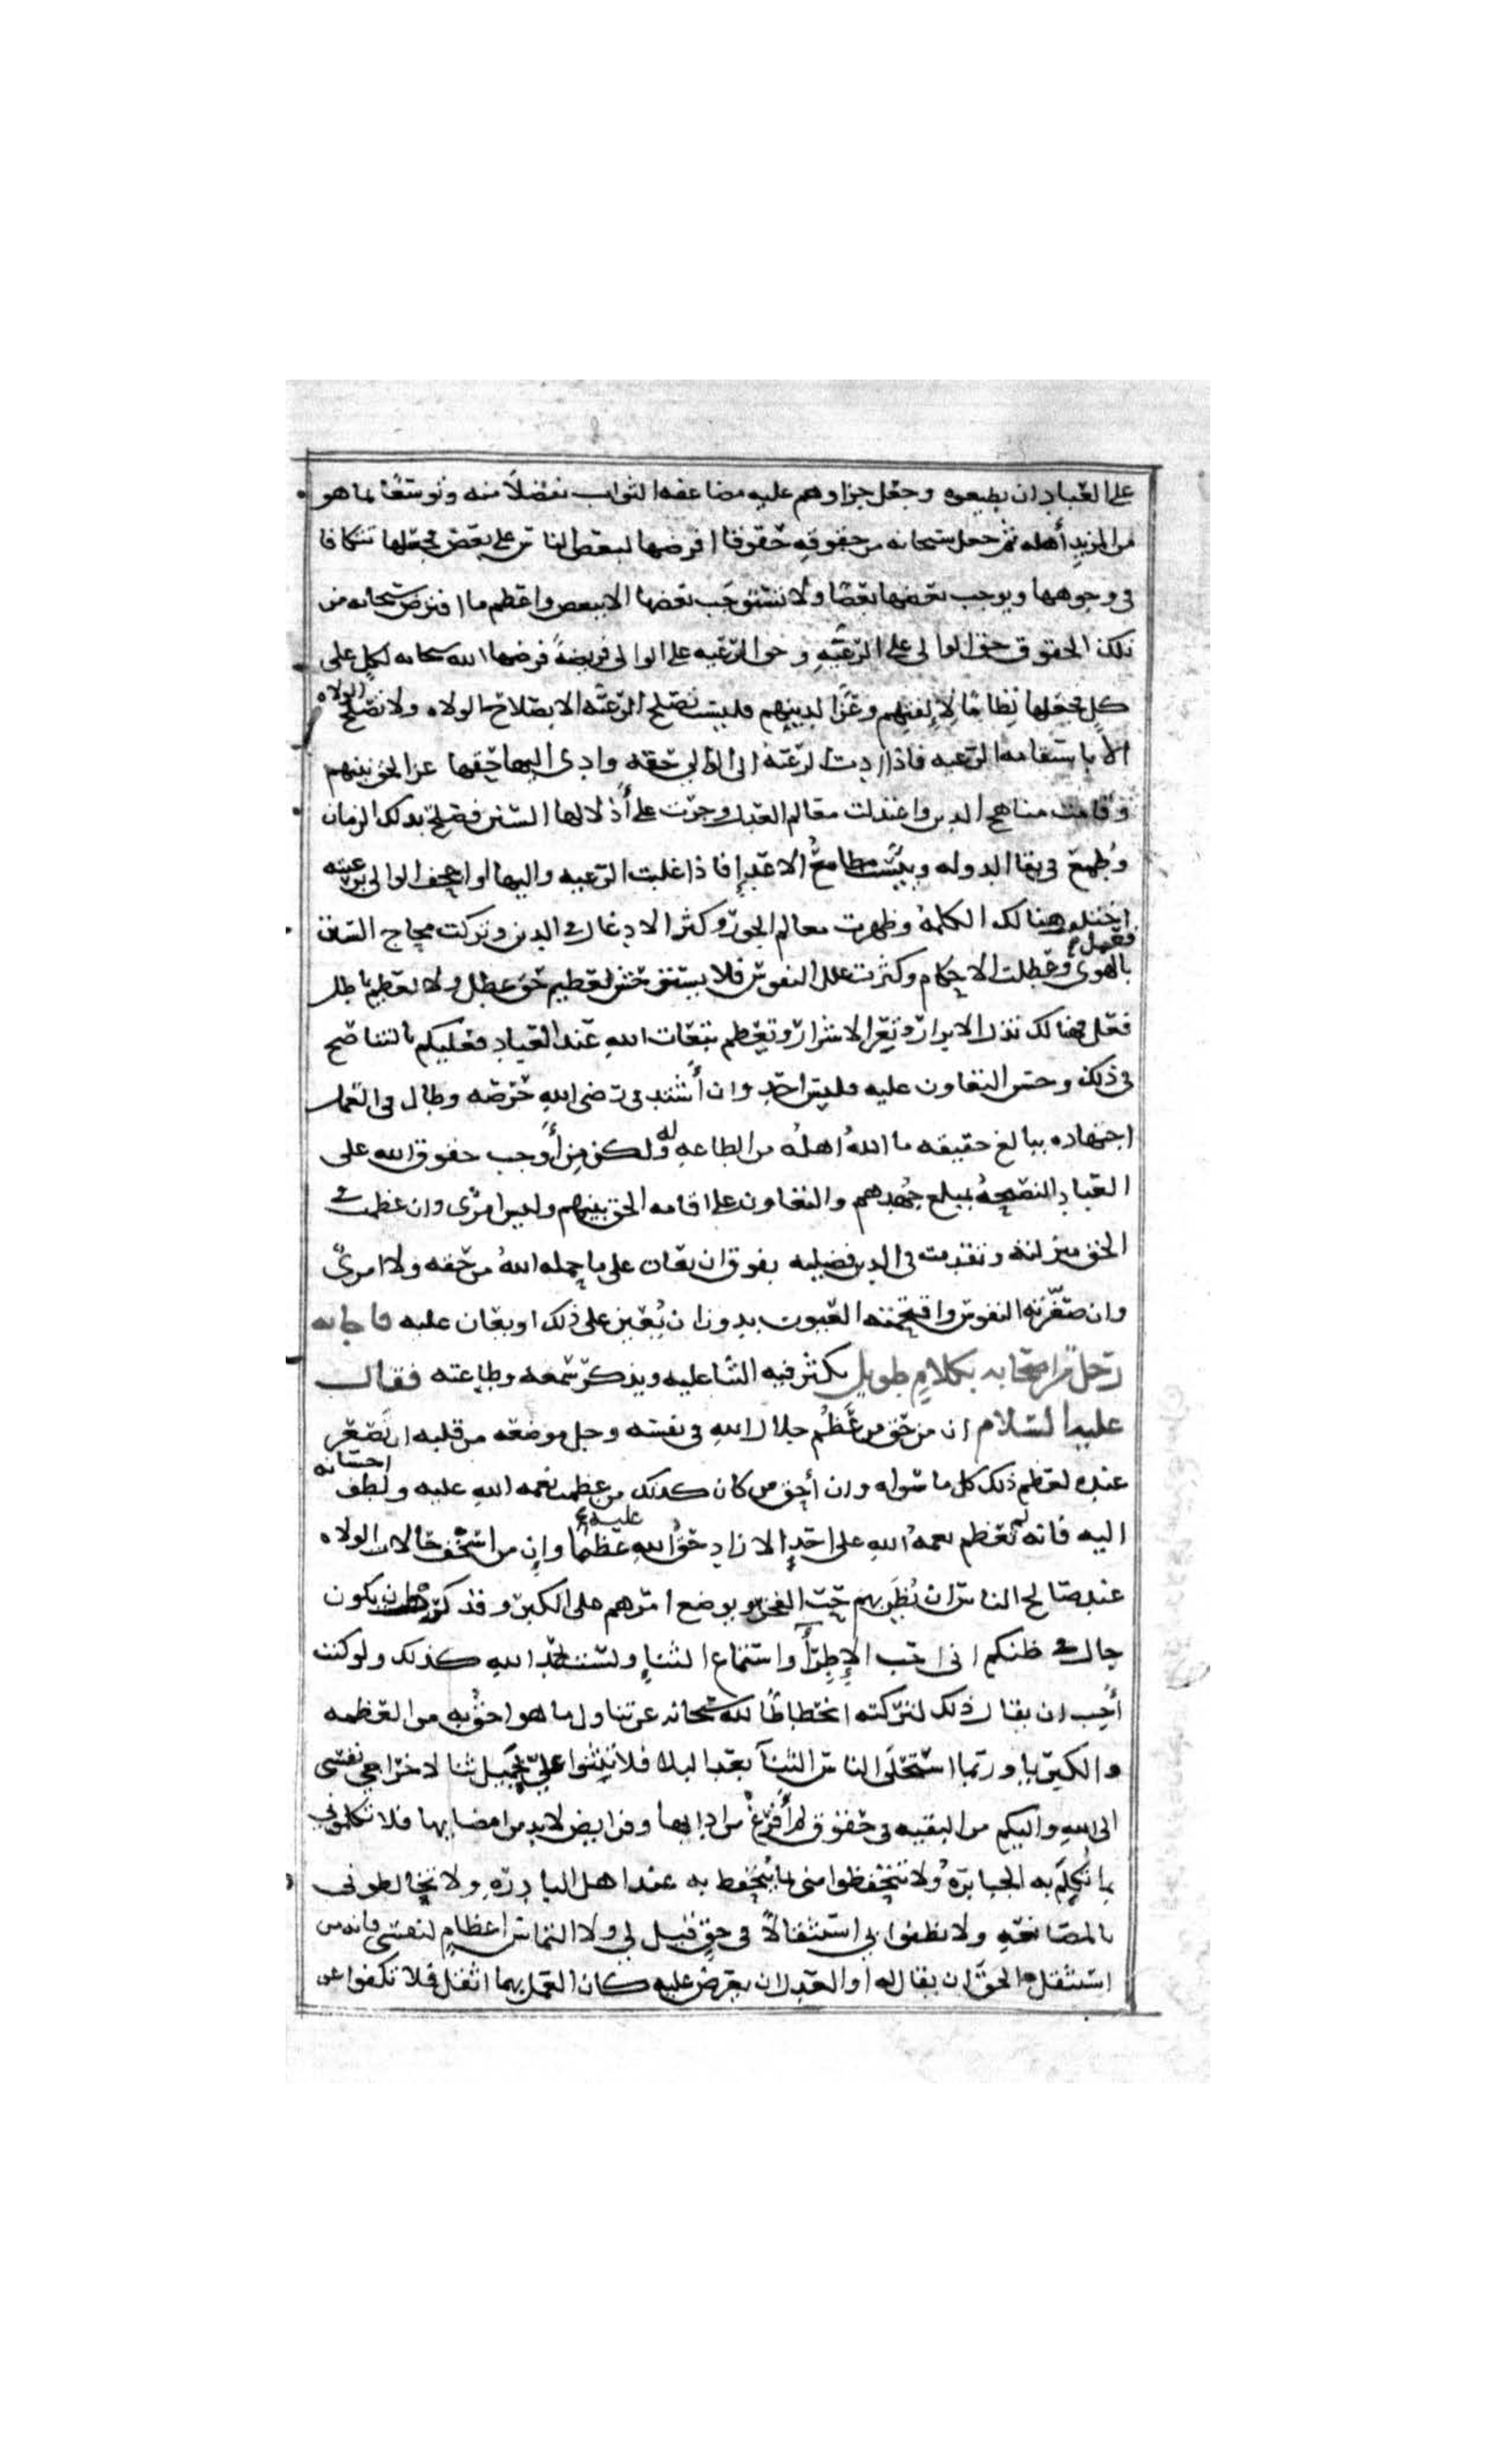 على العباد ان يطيعوه وجعل جزاوهم عليه مضاعفه الثواب تفضلاً منه وتوسعًا بما هو
من المزيد أهله ثم جعل سبحانه من حقوقه حقوقا افرضها لبعض الناس على بعض فجعلها تتكافا
في وجوهها ويوجب بعضها بعضًا ولا تستوجب بعضها الا ببعض واعظم ما افترض سبحانه من
تلك الحقوق حق الوالي على الرعيه وحق الرعيه على الوالي فريضةً فرضها الله سبحانه لكل على
كل فجعلها نظامًا لإلفتهم وعزًا لدينهم فليست تصلح الرعيه الا بصلاح الولاه ولا تصلح الولاه
الا باستقامه الرعيه فاذا ادت الرعية الى الوالي حقه وادى اليها حقها عز الحق بينهم
وقامت مناهج الدين واعتدلت معالم العدل وجرت على أذلالها السنن فصلح بذلك الزمان
وطُمع في بقا الدوله ويئست مطامعُ الاعدإ فاذا غلبت الرعيه واليها او اجحف الوالي برعيته
اختلفت هنالك الكلمة وظهرت معالم الجور وكثر الادغال في الدين وتركت محاج السنن فعمل
بالهوى وعطلت الاحكام وكثرت علل النفوس فلا يستوحش لعظيم حق عطل ولا لعظيم باطل
فعل فهنالك تذل الابرار وتعز الاشرار وتعظم تبعات الله عند العباد فعليكم بالتناصح
في ذلك وحسن التعاون عليه فليس احد وان أشتد في رضى الله حرصه وطال في العمل
اجتهاده ببالغ حقيقه ما اللهُ اهلهُ من الطاعه له ولكن من أوجب حقوق الله على
العباد النصيحهُ بمبلغ جُهدهم والتعاون على اقامه الحق بينهم وليس امرى وان عظمت في
الحق منزلته وتقدمت في الدين فضيلته بفوق ان يعان على ما حمله اللهُ من حقه ولا امرئ
وان صغّرته النفوس واقتحمته العيون بدون ان يُعين على ذلك او يعان عليه فاجابه
رجل من اصحابه بكلامٍ طويلٍ يكثر فيه الثنا عليه ويذكر سمعه وطاعته فقال
عليه السلام ان من حق من عَظُم جلال الله في نفسه وجل موضعه من قلبه ان يَصغر
عنده لعظم ذلك كل ما سواه وان أحق من كان كذلك من عظمت نعمه الله عليه ولطف احسانه
اليه فانه لم تعظم نعمهُ اللهِ على احدٍ الا زاد حقُّ اللهِ عليه عظمًا وإن من اسخف حالات الولاه
عند صالح الناس ان يُظن بهم حب الفخر ويوضع امرهم على الكبر وقد كرهت ان يكون
جال في ظنكم اني احب الإطرآ واستماع الثناءِ ولست بحمد الله كذلك ولو كنت
أحب ان يقال ذلك لتركته انحطاطًا لله سبحانه عن تناول ما هو احق به من العظمه
والكبريا وربما استحلى الناس الثنآ بعد البلا فلا تثنوا عليّ بجميل ثنا لاخراجي نفسي
الى الله واليكم من البقيه في حقوق لم أفرغ من ادايها وفرايض لا بد من امضايها فلا تكلموني
بما تُكلم به الجبابرهُ ولا تتحفظوا مني بما يُتحفظ به عند اهل البادره ولا تخالطوني
بالمصانعه ولا تظنوا بي استثقالًا في حقٍ قيل لي ولا التماس اعظامٍ لنفسي فانه من
استثقل الحق ان يقال له او العدل ان يعرض عليه كان العمل بهما اثقل فلا تكفوا عن